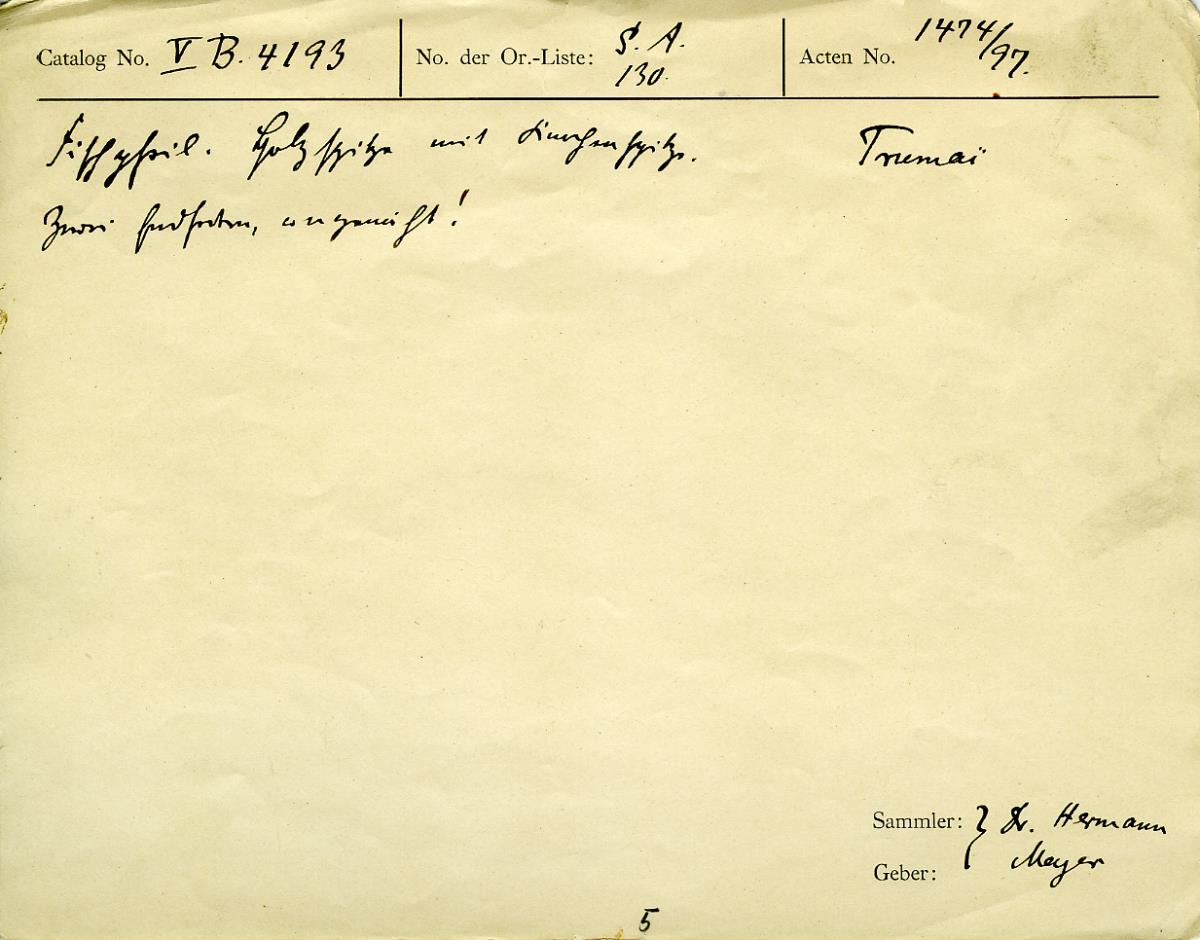 Catalog No. V B. 4193
No. der Or.-Liste: S. A. 130.
Acten No. 1474/97.
Fischpfeil. Holzspitze mit Knochenspitze. Trumaí
Zwei Endfedern, angenäht!
Sammler: } Dr. Hermann
Geber: Meyer
5